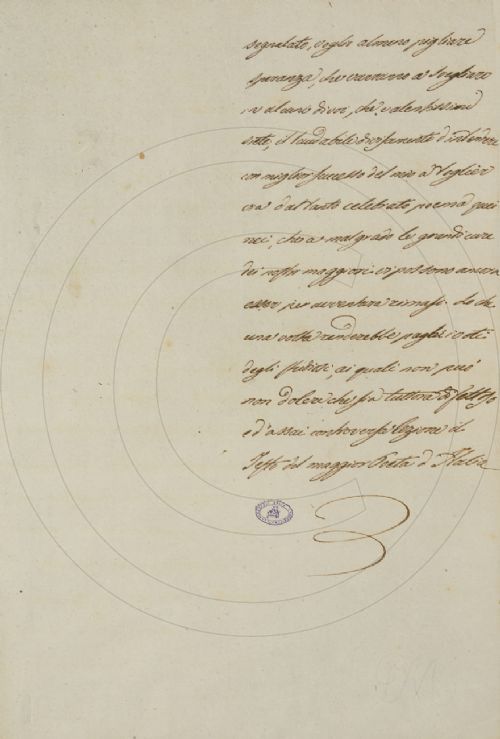 segnalato, voglio almeno pigliare
speranza, che verranno a svegliare
in alcuno di voi, che valentissimi
siete, il laudabile divisamento d'intendere
con miglior successo del mio a togliere
via dal tanto celebrato poema quei
nei, che a malgrado le grandi cure
dei nostri maggiori vi possono ancora
esser per avventura rimasi. Lo che
una volta renderebbe paghi i voti
degli studiosi, ai quali non può
non dolere che sia tuttora
e d'assai controversa lezione il
Testo del maggior Poeta d'Italia